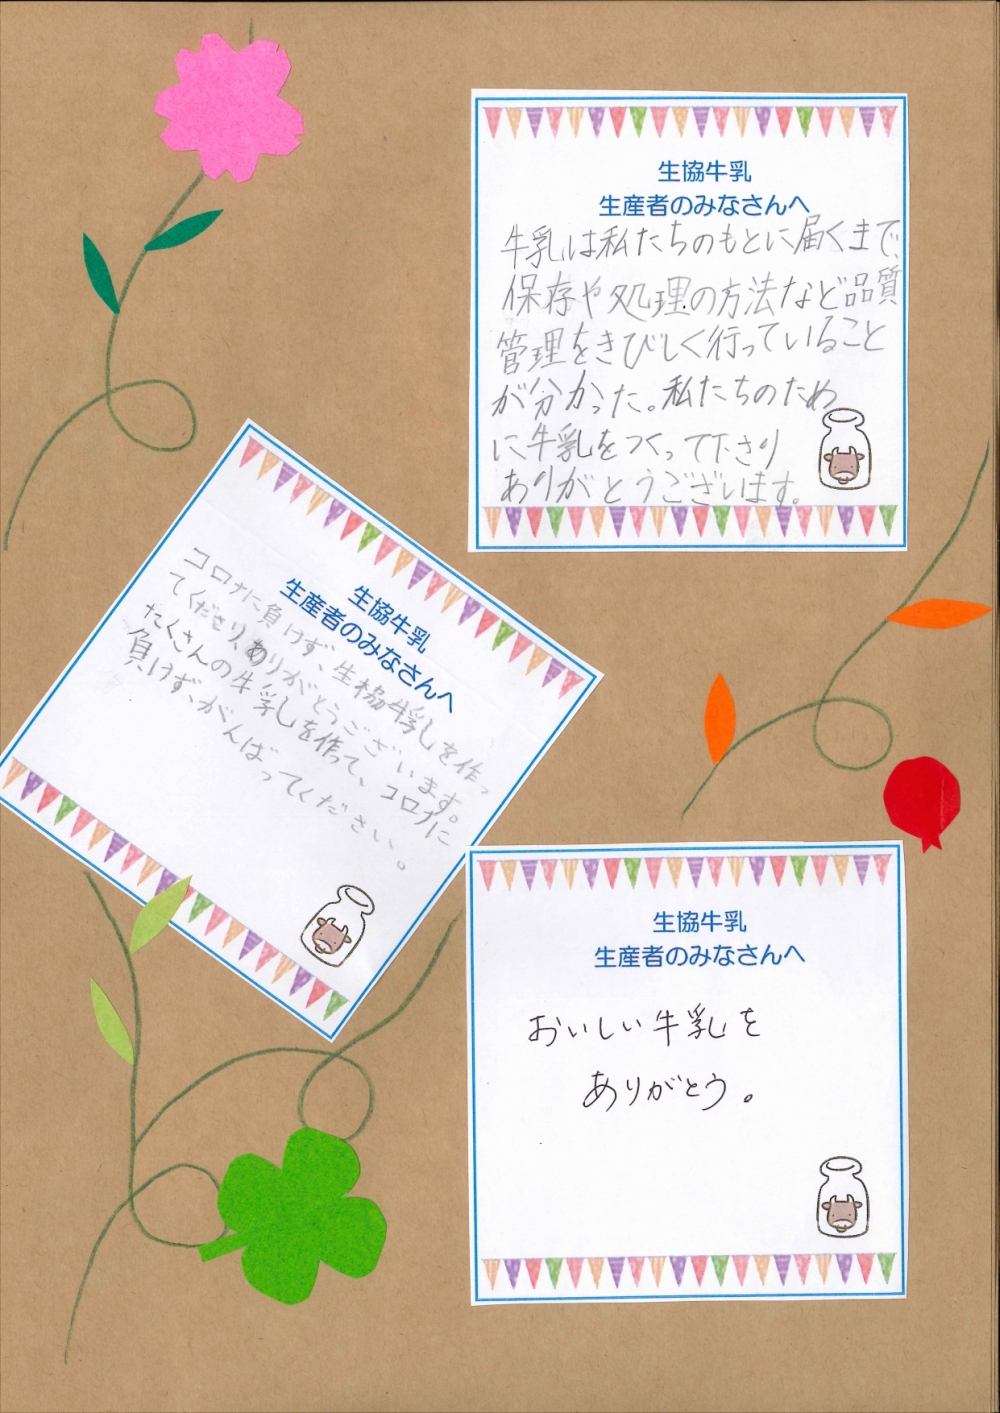 生協牛乳
生産者のみなさんへ
牛乳は私たちのもとに届くまで、
保存や処理の方法など品質
管理をきびしく行っていること
が分かった。私たちのため
に牛乳をつくって下さり
ありがとうございます。
生協牛乳
生産者のみなさんへ
コロナに負けず、生協牛乳を作っ
てくださり、ありがとうございます。
たくさんの牛乳を作って、コロナに
負けず、がんばってください。
生協牛乳
生産者のみなさんへ
おいしい牛乳を
ありがとう。